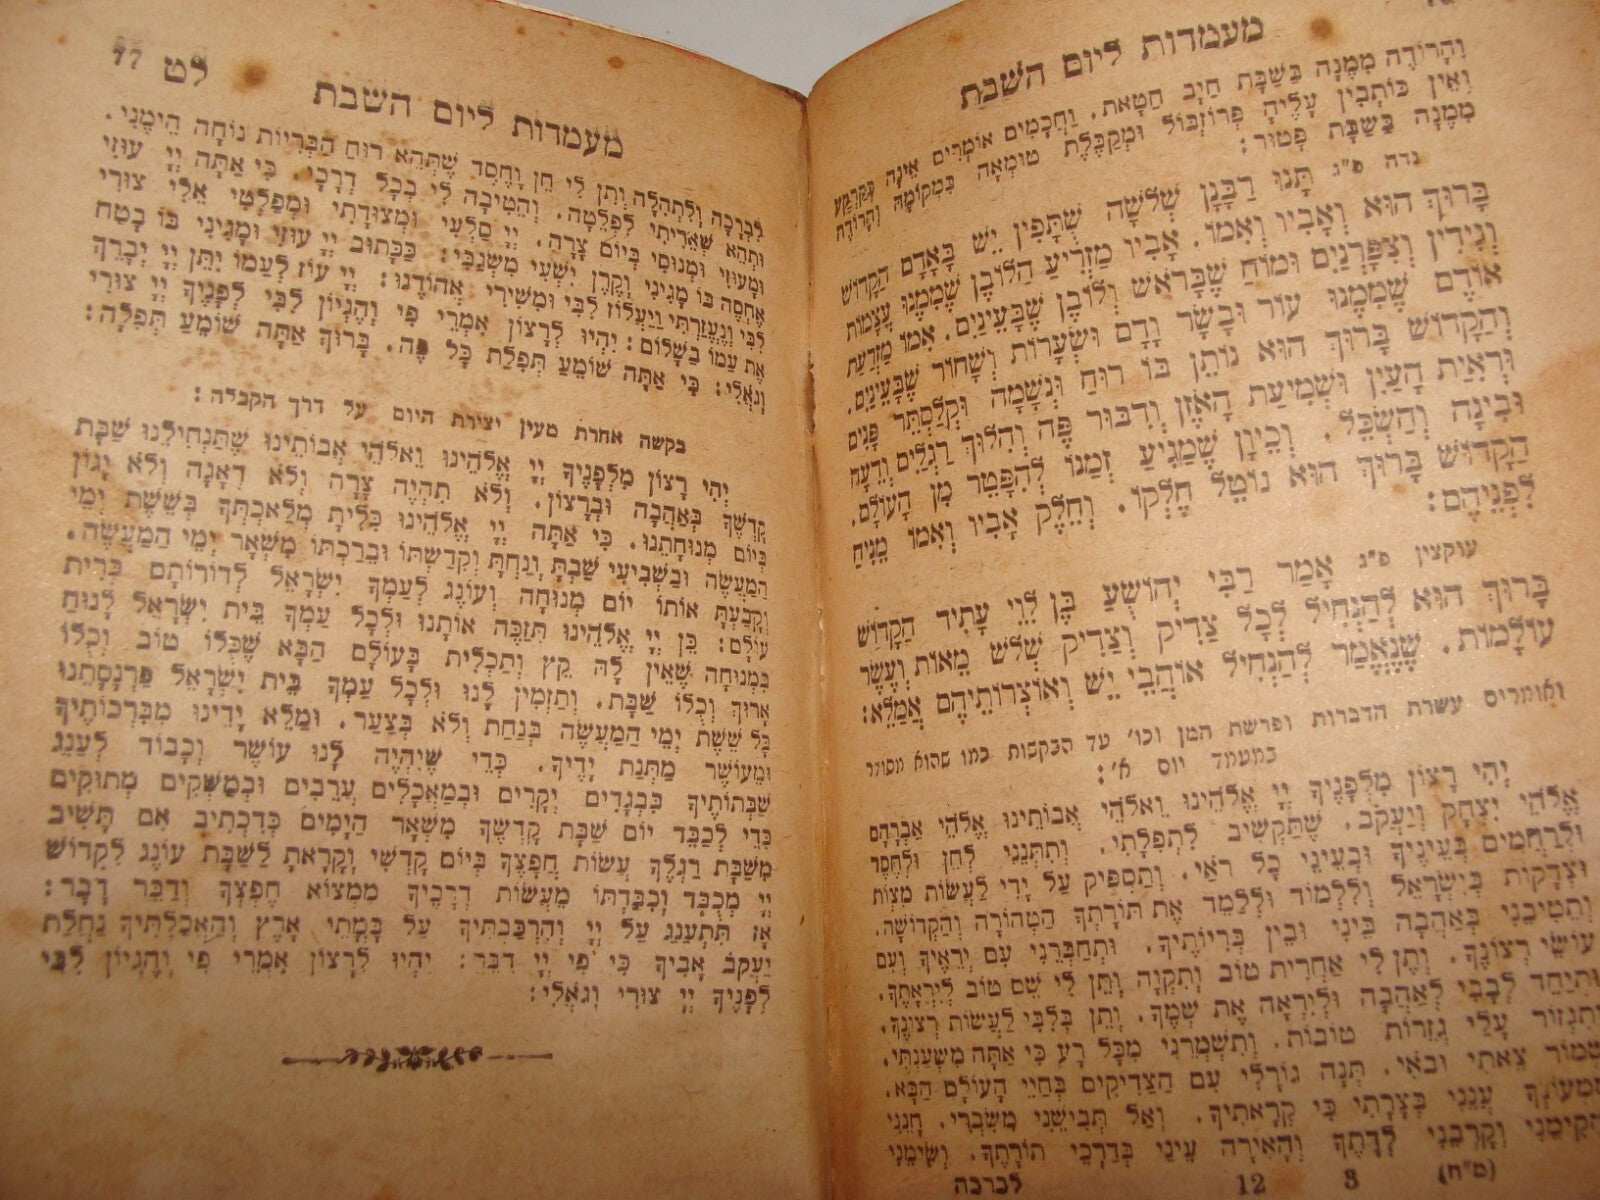 מעמדות ליום השבת
וְהָרוֹדֶה מִמֶּנָּה בַּשַּׁבָּת חַיָּב חַטָּאת. וַחֲכָמִים אוֹמְרִים אֵינָהּ כְּקַרְקַע
וְאֵין כּוֹתְבִין עָלֶיהָ פְּרוֹזְבּוֹל וּמְקַבֶּלֶת טוּמְאָה בִּמְקוֹמָהּ וְהָרוֹדֶה
מִמֶּנָּה בַּשַּׁבָּת פָּטוּר:
נדה פ״ג תָּנוּ רַבָּנָן שְׁלֹשָׁה שֻׁתָּפִין יֵשׁ בָּאָדָם הַקָּדוֹשׁ
בָּרוּךְ הוּא וְאָבִיו וְאִמּוֹ. אָבִיו מַזְרִיעַ הַלּוֹבֶן שֶׁמִּמֶּנּוּ עֲצָמוֹת
וְגִידִין וְצִפָּרְנַיִם וּמוֹחַ שֶׁבָּרֹאשׁ וְלוֹבֶן שֶׁבָּעֵינַיִם. אִמּוֹ מַזְרַעַת
אוֹדֶם שֶׁמִּמֶּנּוּ עוֹר וּבָשָׂר וָדָם וּשְׂעָרוֹת וְשָׁחוֹר שֶׁבָּעֵינַיִם.
וְהַקָּדוֹשׁ בָּרוּךְ הוּא נוֹתֵן בּוֹ רוּחַ וּנְשָׁמָה וּקְלַסְתֵּר פָּנִים
וּרְאִיַּת הָעַיִן וּשְׁמִיעַת הָאֹזֶן וְדִבּוּר פֶּה וְהִלּוּךְ רַגְלַיִם וְדֵעָה
וּבִינָה וְהַשְׂכֵּל. וְכֵיוָן שֶׁמַּגִּיעַ זְמַנּוֹ לְהִפָּטֵר מִן הָעוֹלָם.
הַקָּדוֹשׁ בָּרוּךְ הוּא נוֹטֵל חֶלְקוֹ. וְחֵלֶק אָבִיו וְאִמּוֹ מַנִּיחַ
לִפְנֵיהֶם:
עוקצין פ״ג אָמַר רַבִּי יְהוֹשֻׁעַ בֶּן לֵוִי עָתִיד הַקָּדוֹשׁ
בָּרוּךְ הוּא לְהַנְחִיל לְכָל צַדִּיק וְצַדִּיק שְׁלֹשׁ מֵאוֹת וְעֶשֶׂר
עוֹלָמוֹת. שֶׁנֶּאֱמַר לְהַנְחִיל אוֹהֲבַי יֵשׁ וְאוֹצְרוֹתֵיהֶם אֲמַלֵּא:
ואומרים עשרת הדברות ופרשת המן וכו׳ עד הבקשות כמו שהוא מסודר
במעמד יום א׳:
יְהִי רָצוֹן מִלְּפָנֶיךָ יְיָ אֱלֹהֵינוּ וֵאלֹהֵי אֲבוֹתֵינוּ אֱלֹהֵי אַבְרָהָם
אֱלֹהֵי יִצְחָק וְיַעֲקֹב. שֶׁתַּקְשִׁיב לִתְפִלָּתִי. וְתִתְּנֵנִי לְחֵן וּלְחֶסֶד
וּלְרַחֲמִים בְּעֵינֶיךָ וּבְעֵינֵי כָל רֹאַי. וְתַסְפִּיק עַל יָדִי לַעֲשׂוֹת מִצְוֹת
וּצְדָקוֹת בְּיִשְׂרָאֵל וְלִלְמוֹד וּלְלַמֵּד אֶת תּוֹרָתְךָ הַטְּהוֹרָה וְהַקְּדוֹשָׁה.
וְתַטִּיבֵנִי בְּאַהֲבָה בֵּינִי וּבֵין בְּרִיּוֹתֶיךָ. וּתְחַבְּרֵנִי עִם יְרֵאֶיךָ וְעִם
עוֹשֵׂי רְצוֹנֶךָ. וְתֶן לִי אַחֲרִית טוֹב וְתִקְוָה וְתֵן לִי שֵׁם טוֹב לְיִרְאָתֶךָ.
וּתְיַחֵד לְבָבִי לְאַהֲבָה וּלְיִרְאָה אֶת שְׁמֶךָ. וְתֵן בְּלִבִּי לַעֲשׂוֹת רְצוֹנֶךָ.
וְתִגְזוֹר עָלַי גְּזֵרוֹת טוֹבוֹת. וְתִשְׁמְרֵנִי מִכָּל רָע כִּי אַתָּה מִשְׁעַנְתִּי.
שְׁמוֹר צֵאתִי וּבֹאִי. תְּנָה גוֹרָלִי עִם הַצַּדִּיקִים בְּחַיֵּי הָעוֹלָם הַבָּא.
מִמְּעוֹנְךָ עֲנֵנִי בְּצָרָתִי כִּי קְרָאתִיךָ. וְאַל תְּבִישֵׁנִי מִשִּׂבְרִי. חָנֵּנִי
הֲקִימֵנִי וְקָרְבֵנִי לְדָתֶךָ וְהָאִירָה עֵינַי בְּדַרְכֵי תוֹרָתֶךָ. וְשִׂימֵנִי
(מ״ח) 3 12 לברכה
מעמדות ליום השבת לט 77
לִבְרָכָה וְלִתְהִלָּה וְתֶן לִי חֵן וָחֶסֶד שֶׁתְּהֵא רוּחַ הַבְּרִיּוֹת נוֹחָה הֵימֶנִּי.
וּתְהֵא שְׁאֵרִיתִי לִפְלֵטָה. וְהֵטִיבָה לִי בְּכָל דְּרָכַי. כִּי אַתָּה יְיָ עוּזִּי
וּמָעוּזִּי וּמְנוּסִי בְּיוֹם צָרָה. יְיָ סַלְעִי וּמְצוּדָתִי וּמְפַלְטִי אֵלִי צוּרִי
אֶחֱסֶה בּוֹ מָגִינִּי וְקֶרֶן יִשְׁעִי מִשְׂגַּבִּי: כַּכָּתוּב יְיָ עוּזִּי וּמָגִינִּי בּוֹ בָטַח
לִבִּי וְנֶעֱזָרְתִּי וַיַּעֲלוֹז לִבִּי וּמִשִּׁירִי אֲהוֹדֶנּוּ: יְיָ עוֹז לְעַמּוֹ יִתֵּן יְיָ יְבָרֵךְ
אֶת עַמּוֹ בַשָּׁלוֹם: יִהְיוּ לְרָצוֹן אִמְרֵי פִי וְהֶגְיוֹן לִבִּי לְפָנֶיךָ יְיָ צוּרִי
וְגֹאֲלִי: כִּי אַתָּה שׁוֹמֵעַ תְּפִלַּת כָּל פֶּה. בָּרוּךְ אַתָּה שׁוֹמֵעַ תְּפִלָּה:
בקשה אחרת מעין יצירת היום על דרך הקבלה:
יְהִי רָצוֹן מִלְּפָנֶיךָ יְיָ אֱלֹהֵינוּ וֵאלֹהֵי אֲבוֹתֵינוּ שֶׁתַּנְחִילֵנוּ שַׁבַּת
קָדְשְׁךָ בְּאַהֲבָה וּבְרָצוֹן. וְלֹא תִהְיֶה צָרָה וְלֹא דְאָגָה וְלֹא יָגוֹן
בְּיוֹם מְנוּחָתֵנוּ. כִּי אַתָּה יְיָ אֱלֹהֵינוּ כִּלִּיתָ מְלַאכְתְּךָ בְּשֵׁשֶׁת יְמֵי
הַמַּעֲשֶׂה וּבַשְּׁבִיעִי שָׁבַתָּ וָנַחְתָּ וְקִדַּשְׁתּוֹ וּבֵרַכְתּוֹ מִשְּׁאָר יְמֵי הַמַּעֲשֶׂה.
וְקָבַעְתָּ אוֹתוֹ יוֹם מְנוּחָה וְעוֹנֶג לְעַמְּךָ יִשְׂרָאֵל לְדוֹרוֹתָם בְּרִית
עוֹלָם: כֵּן יְיָ אֱלֹהֵינוּ תְּזַכֶּה אוֹתָנוּ וּלְכָל עַמְּךָ בֵּית יִשְׂרָאֵל לָנוּחַ
בִּמְנוּחָה שֶׁאֵין לָהּ קֵץ וְתַכְלִית בָּעוֹלָם הַבָּא שֶׁכֻּלּוֹ טוֹב וְכֻלּוֹ
אָרוֹךְ וְכֻלּוֹ שַׁבָּת. וְתַזְמִין לָנוּ וּלְכָל עַמְּךָ בֵּית יִשְׂרָאֵל פַּרְנָסָתֵנוּ
כָּל שֵׁשֶׁת יְמֵי הַמַּעֲשֶׂה בְּנַחַת וְלֹא בְּצַעַר. וּמַלֵּא יָדֵינוּ מִבִּרְכוֹתֶיךָ
וּמֵעוֹשֶׁר מַתְּנַת יָדֶיךָ. כְּדֵי שֶׁיִּהְיֶה לָנוּ עוֹשֶׁר וְכָבוֹד לְעַנֵּג
שַׁבְּתוֹתֶיךָ בִּבְגָדִים יְקָרִים וּבְמַאֲכָלִים עֲרֵבִים וּבְמַשְׁקִים מְתוּקִים
כְּדֵי לְכַבֵּד יוֹם שַׁבָּת קָדְשֶׁךָ מִשְּׁאָר הַיָּמִים כְּדִכְתִיב אִם תָּשִׁיב
מִשַּׁבָּת רַגְלֶךָ עֲשׂוֹת חֲפָצֶךָ בְּיוֹם קָדְשִׁי וְקָרָאתָ לַשַּׁבָּת עוֹנֶג לִקְדוֹשׁ
יְיָ מְכֻבָּד וְכִבַּדְתּוֹ מֵעֲשׂוֹת דְּרָכֶיךָ מִמְּצוֹא חֶפְצְךָ וְדַבֵּר דָּבָר:
אָז תִּתְעַנַּג עַל יְיָ וְהִרְכַּבְתִּיךָ עַל בָּמֳתֵי אָרֶץ וְהַאֲכַלְתִּיךָ נַחֲלַת
יַעֲקֹב אָבִיךָ כִּי פִּי יְיָ דִּבֵּר: יִהְיוּ לְרָצוֹן אִמְרֵי פִי וְהֶגְיוֹן לִבִּי
לְפָנֶיךָ יְיָ צוּרִי וְגֹאֲלִי: